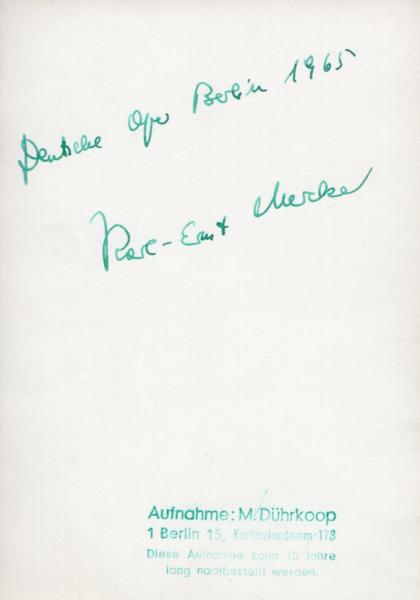 Deutsche Oper Berlin 1965
Karl-Ernst Mercker
Aufnahme: M. Dührkoop
1 Berlin 15, Kurfürstendamm 173
Diese Aufnahme kann 10 Jahre
lang nachbestellt werden.